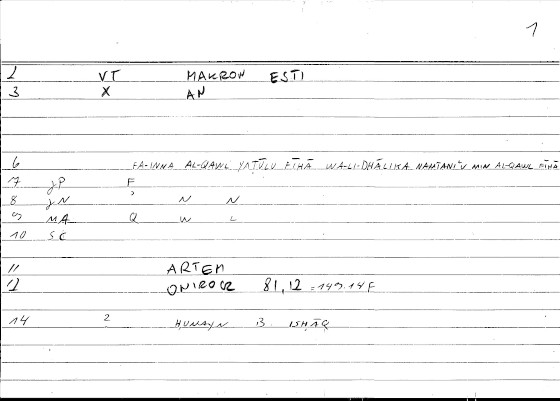 1
2 VT MAKRON ESTI
3 X AN
6 FA-INNA AL-QAWL YAṬŪLU FĪHĀ WA-LI-DHĀLIKA NAMTANIʿU MIN AL-QAWL FĪHĀ
7 JP F
8 JN ʾ N N
9 MA Q W L
10 SC
11 ARTEM
12 ONIROCR 81,12 = 149.14F
14 2 ḤUNAYN B. ISḤĀQ